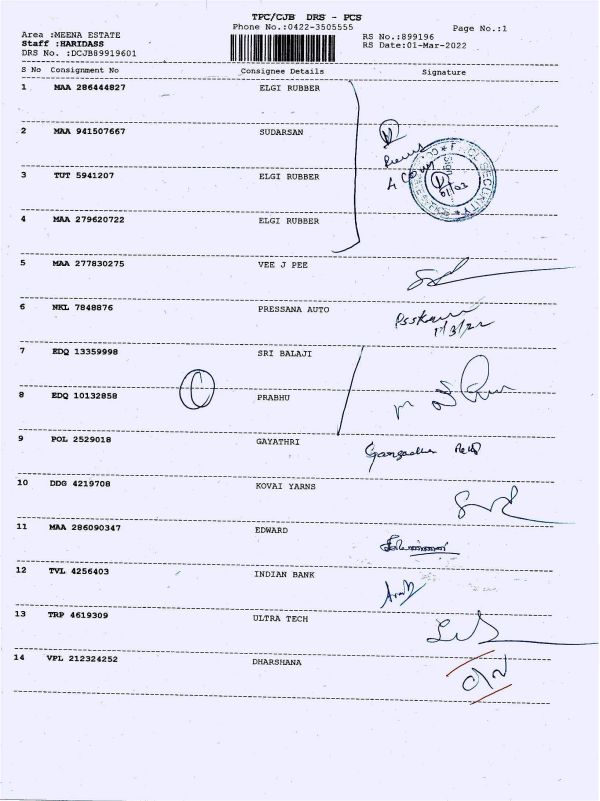 TPC/CJB DRS - PCS
Phone No.:0422-3505555
Page No.:1
Area :MEENA ESTATE
RS No.:899196
Staff :HARIDASS
RS Date:01-Mar-2022
DRS No. :DCJB89919601
S No Consignment No Consignee Details Signature
1 MAA 286444827 ELGI RUBBER
2 MAA 941507667 SUDARSAN
3 TUT 5941207 ELGI RUBBER
4 MAA 279620722 ELGI RUBBER
5 MAA 277830275 VEE J PEE
6 NKL 7848876 PRESSANA AUTO
1/3/22
7 EDQ 13359998 SRI BALAJI
8 EDQ 10132858 PRABHU
9 POL 2529018 GAYATHRI
10 DDG 4219708 KOVAI YARNS
11 MAA 286090347 EDWARD
12 TVL 4256403 INDIAN BANK
13 TRP 4619309 ULTRA TECH
14 VPL 212324252 DHARSHANA